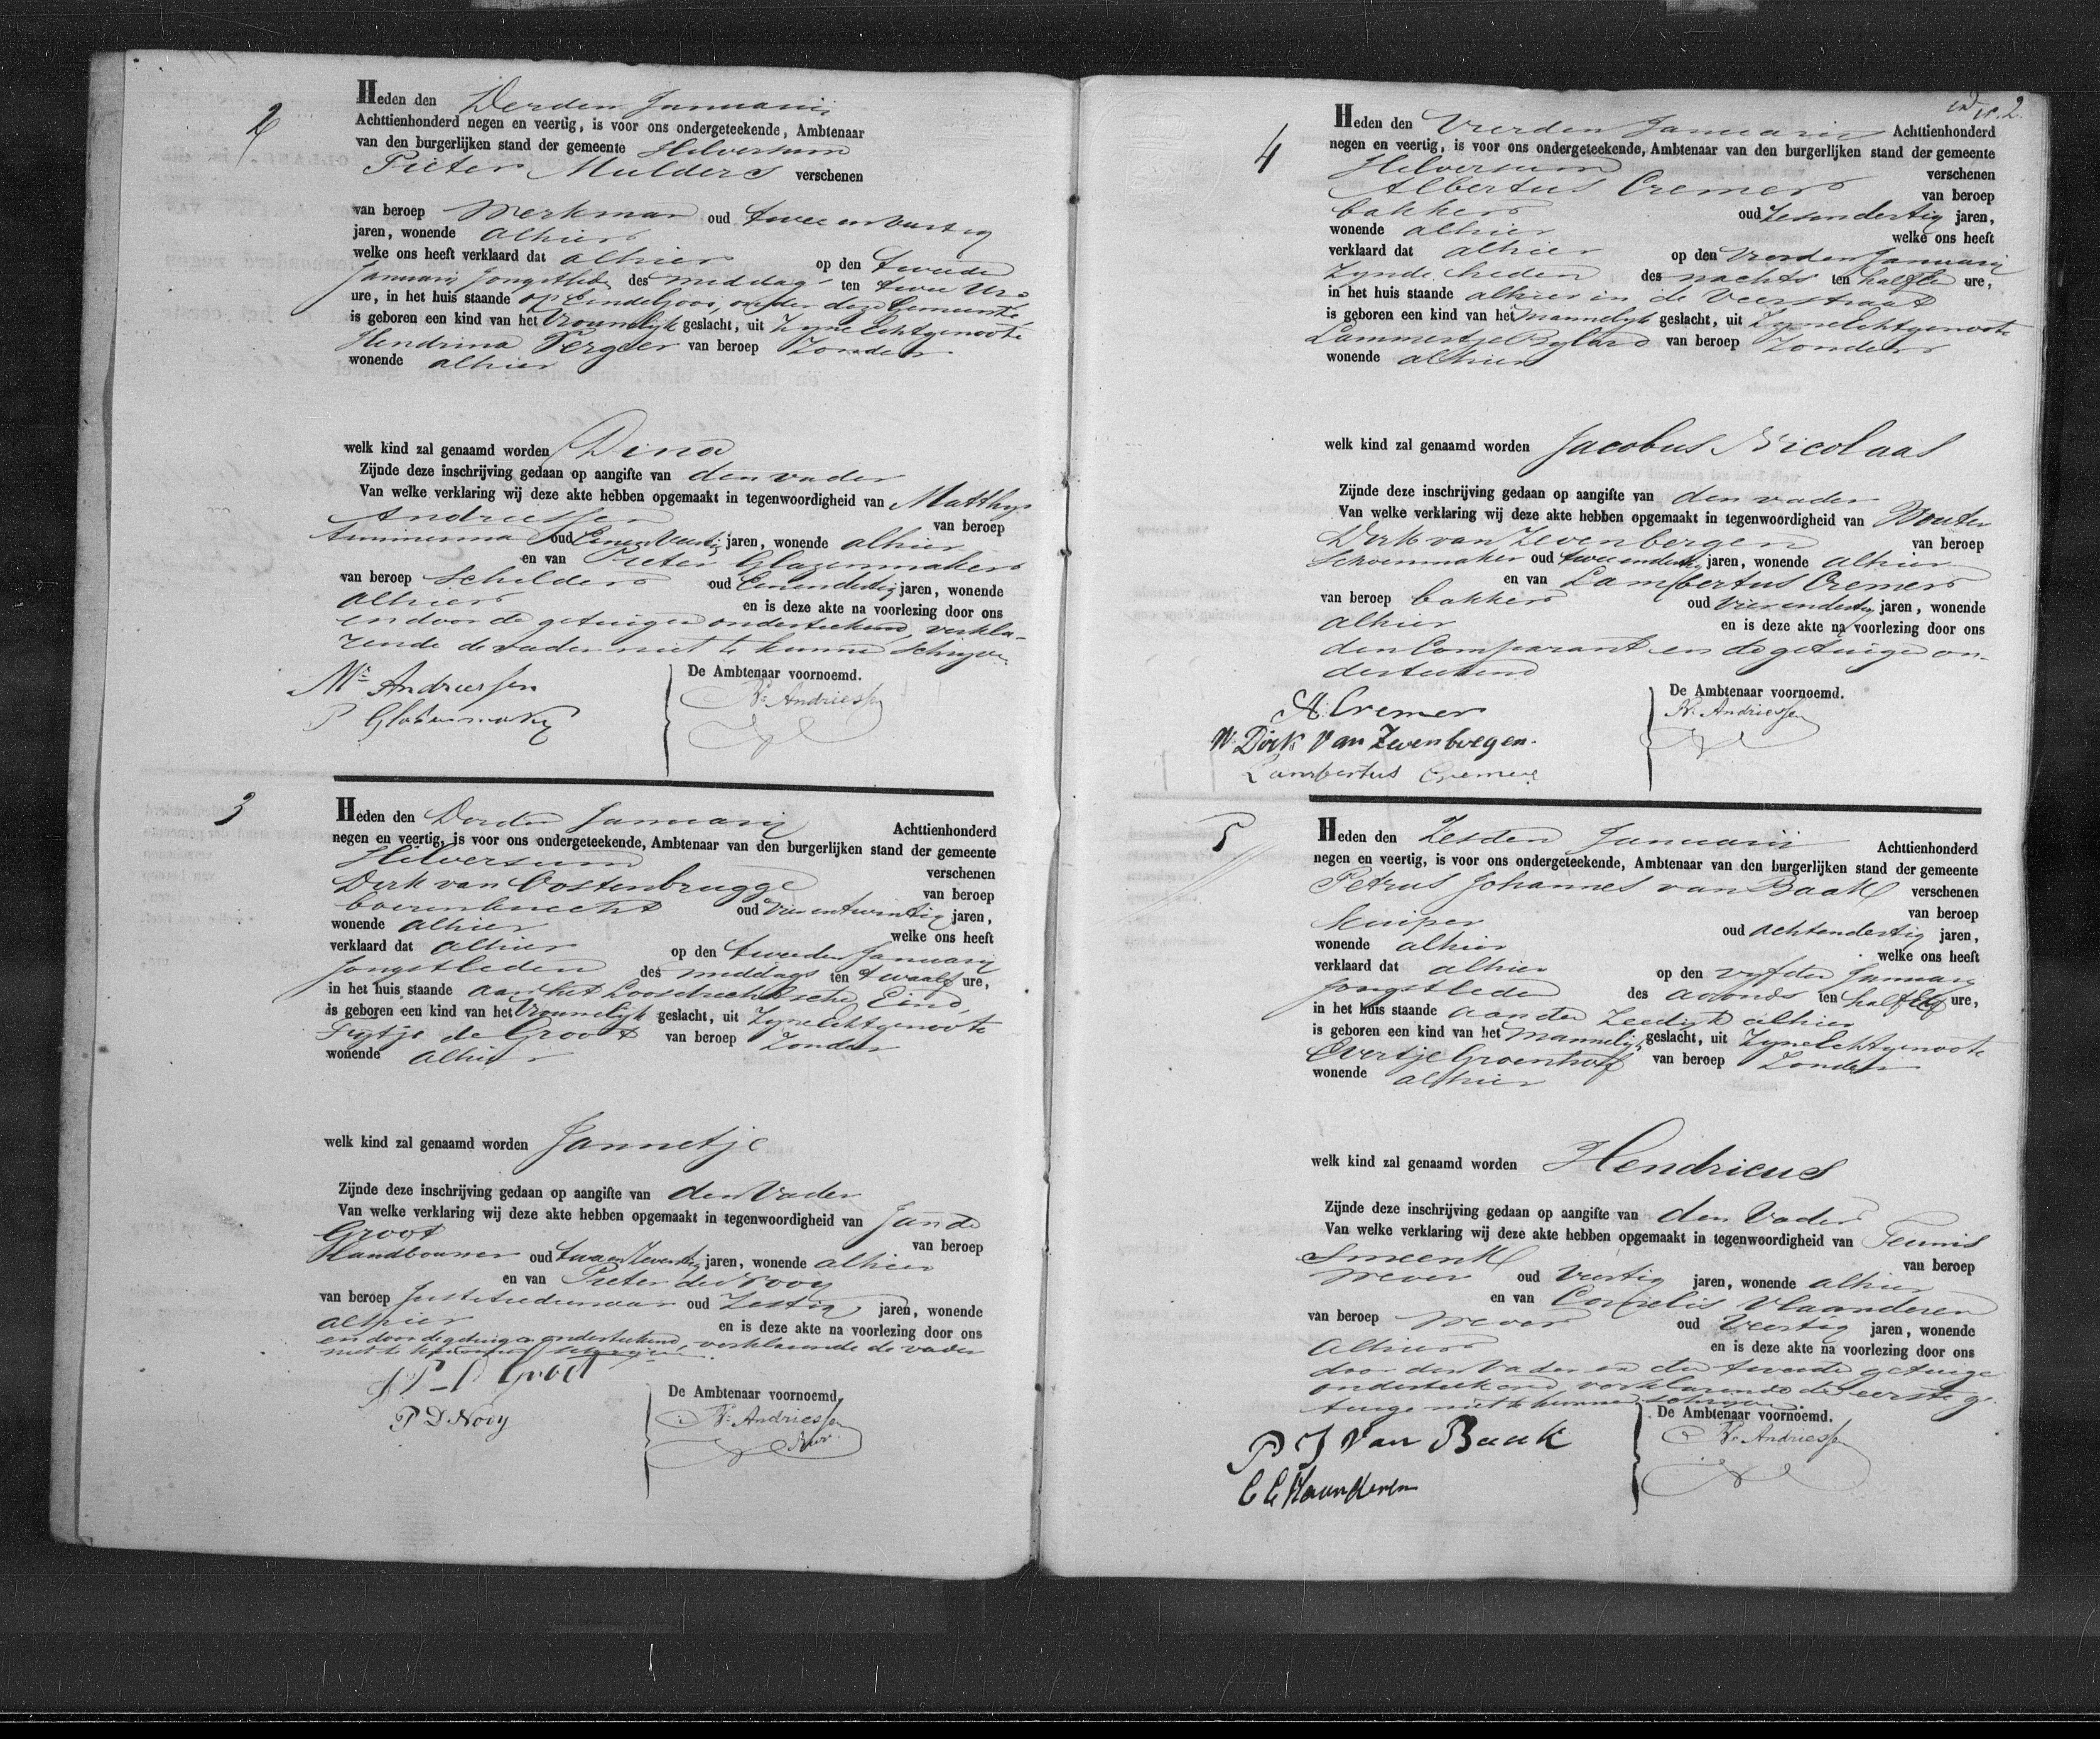 2
Heden den Derden Januarij
Achttienhonderd negen en veertig, is voor ons ondergeteekende, Ambtenaar
van den burgerlijken stand der gemeente Hilversum
Pieter Mulders verschenen
van beroep Werkman oud twee en veertig
jaren, wonende alhier
welke ons heeft verklaard dat alhier op den tweede
Januarij Jongstleden des middags ten twee Ure
ure, in het huis staande op onder deze Gemeente
is geboren een kind van het Vrouwelijk geslacht, uit Zijne Echtgenoote
Hendrina van beroep Zonder
wonende alhier
welk kind zal genaamd worden Dina
Zijnde deze inschrijving gedaan op aangifte van den vader
Van welke verklaring wij deze akte hebben opgemaakt in tegenwoordigheid van Matthijs
Andriessen van beroep
timmerman oud jaren, wonende alhier
en van Pieter Glazenmaker
van beroep Schilder oud Eenendertig jaren, wonende
alhier en is deze akte na voorlezing door ons
en door de getuigen onderteekend, verkla-
rende de vader niet te kunnen schrijven.
Ms Andriessen
De Ambtenaar voornoemd.
P Glasenmaker
Ks Andriessen
3
Heden den Derden Januarij Achttienhonderd
negen en veertig, is voor ons ondergeteekende, Ambtenaar van den burgerlijken stand der gemeente
Hilversum verschenen
Derk van Oostenbrugge van beroep
boerenknecht oud Vierentwintig jaren,
wonende alhier welke ons heeft
verklaard dat alhier op den tweeden Januarij
Jongstleden des middags ten twaalf ure,
in het huis staande aan het Loosdrechtsche Eind,
is geboren een kind van het Vrouwelijk geslacht, uit Zijne Echtgenoote
Fijtje de Groot van beroep Zonder
wonende alhier
welk kind zal genaamd worden Jannetje
Zijnde deze inschrijving gedaan op aangifte van den Vader
Van welke verklaring wij deze akte hebben opgemaakt in tegenwoordigheid van Jan de
Groot van beroep
Landbouwer oud jaren, wonende alhier
en van Pieter de Nooy
van beroep oud Zestig jaren, wonende
alhier en is deze akte na voorlezing door ons
en door de getuigen onderteekend, verklarende de vader
niet te kunnen schrijven.
Groot
De Ambtenaar voornoemd,
P D Nooy
Ks Andriessen
4
2.
Heden den Vierden Januarij Achttienhonderd
negen en veertig, is voor ons ondergeteekende, Ambtenaar van den burgerlijken stand der gemeente
Hilversum verschenen
Albertus Cremer van beroep
bakker oud Zesendertig jaren,
wonende alhier welke ons heeft
verklaard dat alhier op den Vierden Januarij
Zijnde heden des nachts ten half een ure,
in het huis staande alhier in de Veerstraat
is geboren een kind van het Mannelijk geslacht, uit Zijne Echtgenoote
Lammertje Bijlard van beroep Zonder
wonende alhier
welk kind zal genaamd worden Jacobus Nicolaas
Zijnde deze inschrijving gedaan op aangifte van den vader
Van welke verklaring wij deze akte hebben opgemaakt in tegenwoordigheid van Wouter
Dirk van Zevenbergen van beroep
Schoenmaker oud twee endertig jaren, wonende alhier
en van Lambertus Cremer
van beroep bakker oud Vier endertig jaren, wonende
alhier en is deze akte na voorlezing door ons
den Comparant en de getuigen on-
derteekend
A. Cremer
De Ambtenaar voornoemd.
W. Dirk Van Zevenbergen.
Ks Andriessen
Lambertus Cremer
5
Heden den Zesden Januarij Achttienhonderd
negen en veertig, is voor ons ondergeteekende, Ambtenaar van den burgerlijken stand der gemeente
Petrus Johannes van Baak verschenen
van beroep
Kuiper oud achtendertig jaren,
wonende alhier welke ons heeft
verklaard dat alhier op den vijfden Januarij
Jongstleden des avonds ten half elf ure,
in het huis staande aan den Zeedijk alhier
is geboren een kind van het Mannelijk geslacht, uit Zijne Echtgenoote
Evertje Groenhof van beroep Zonder
wonende alhier
welk kind zal genaamd worden Hendricus
Zijnde deze inschrijving gedaan op aangifte van den Vader
Van welke verklaring wij deze akte hebben opgemaakt in tegenwoordigheid van Teunis
Smeenk van beroep
Wever oud Veertig jaren, wonende alhier
en van Cornelis Vlaanderen
van beroep Wever oud Veertig jaren, wonende
Alhier en is deze akte na voorlezing door ons
door den Vader en den tweede getuige
onderteekend verklarende de eerste ge-
tuige niet te kunnen schrijven.
De Ambtenaar voornoemd.
P J Van Baak
Ks Andriessen
C Vlaanderen